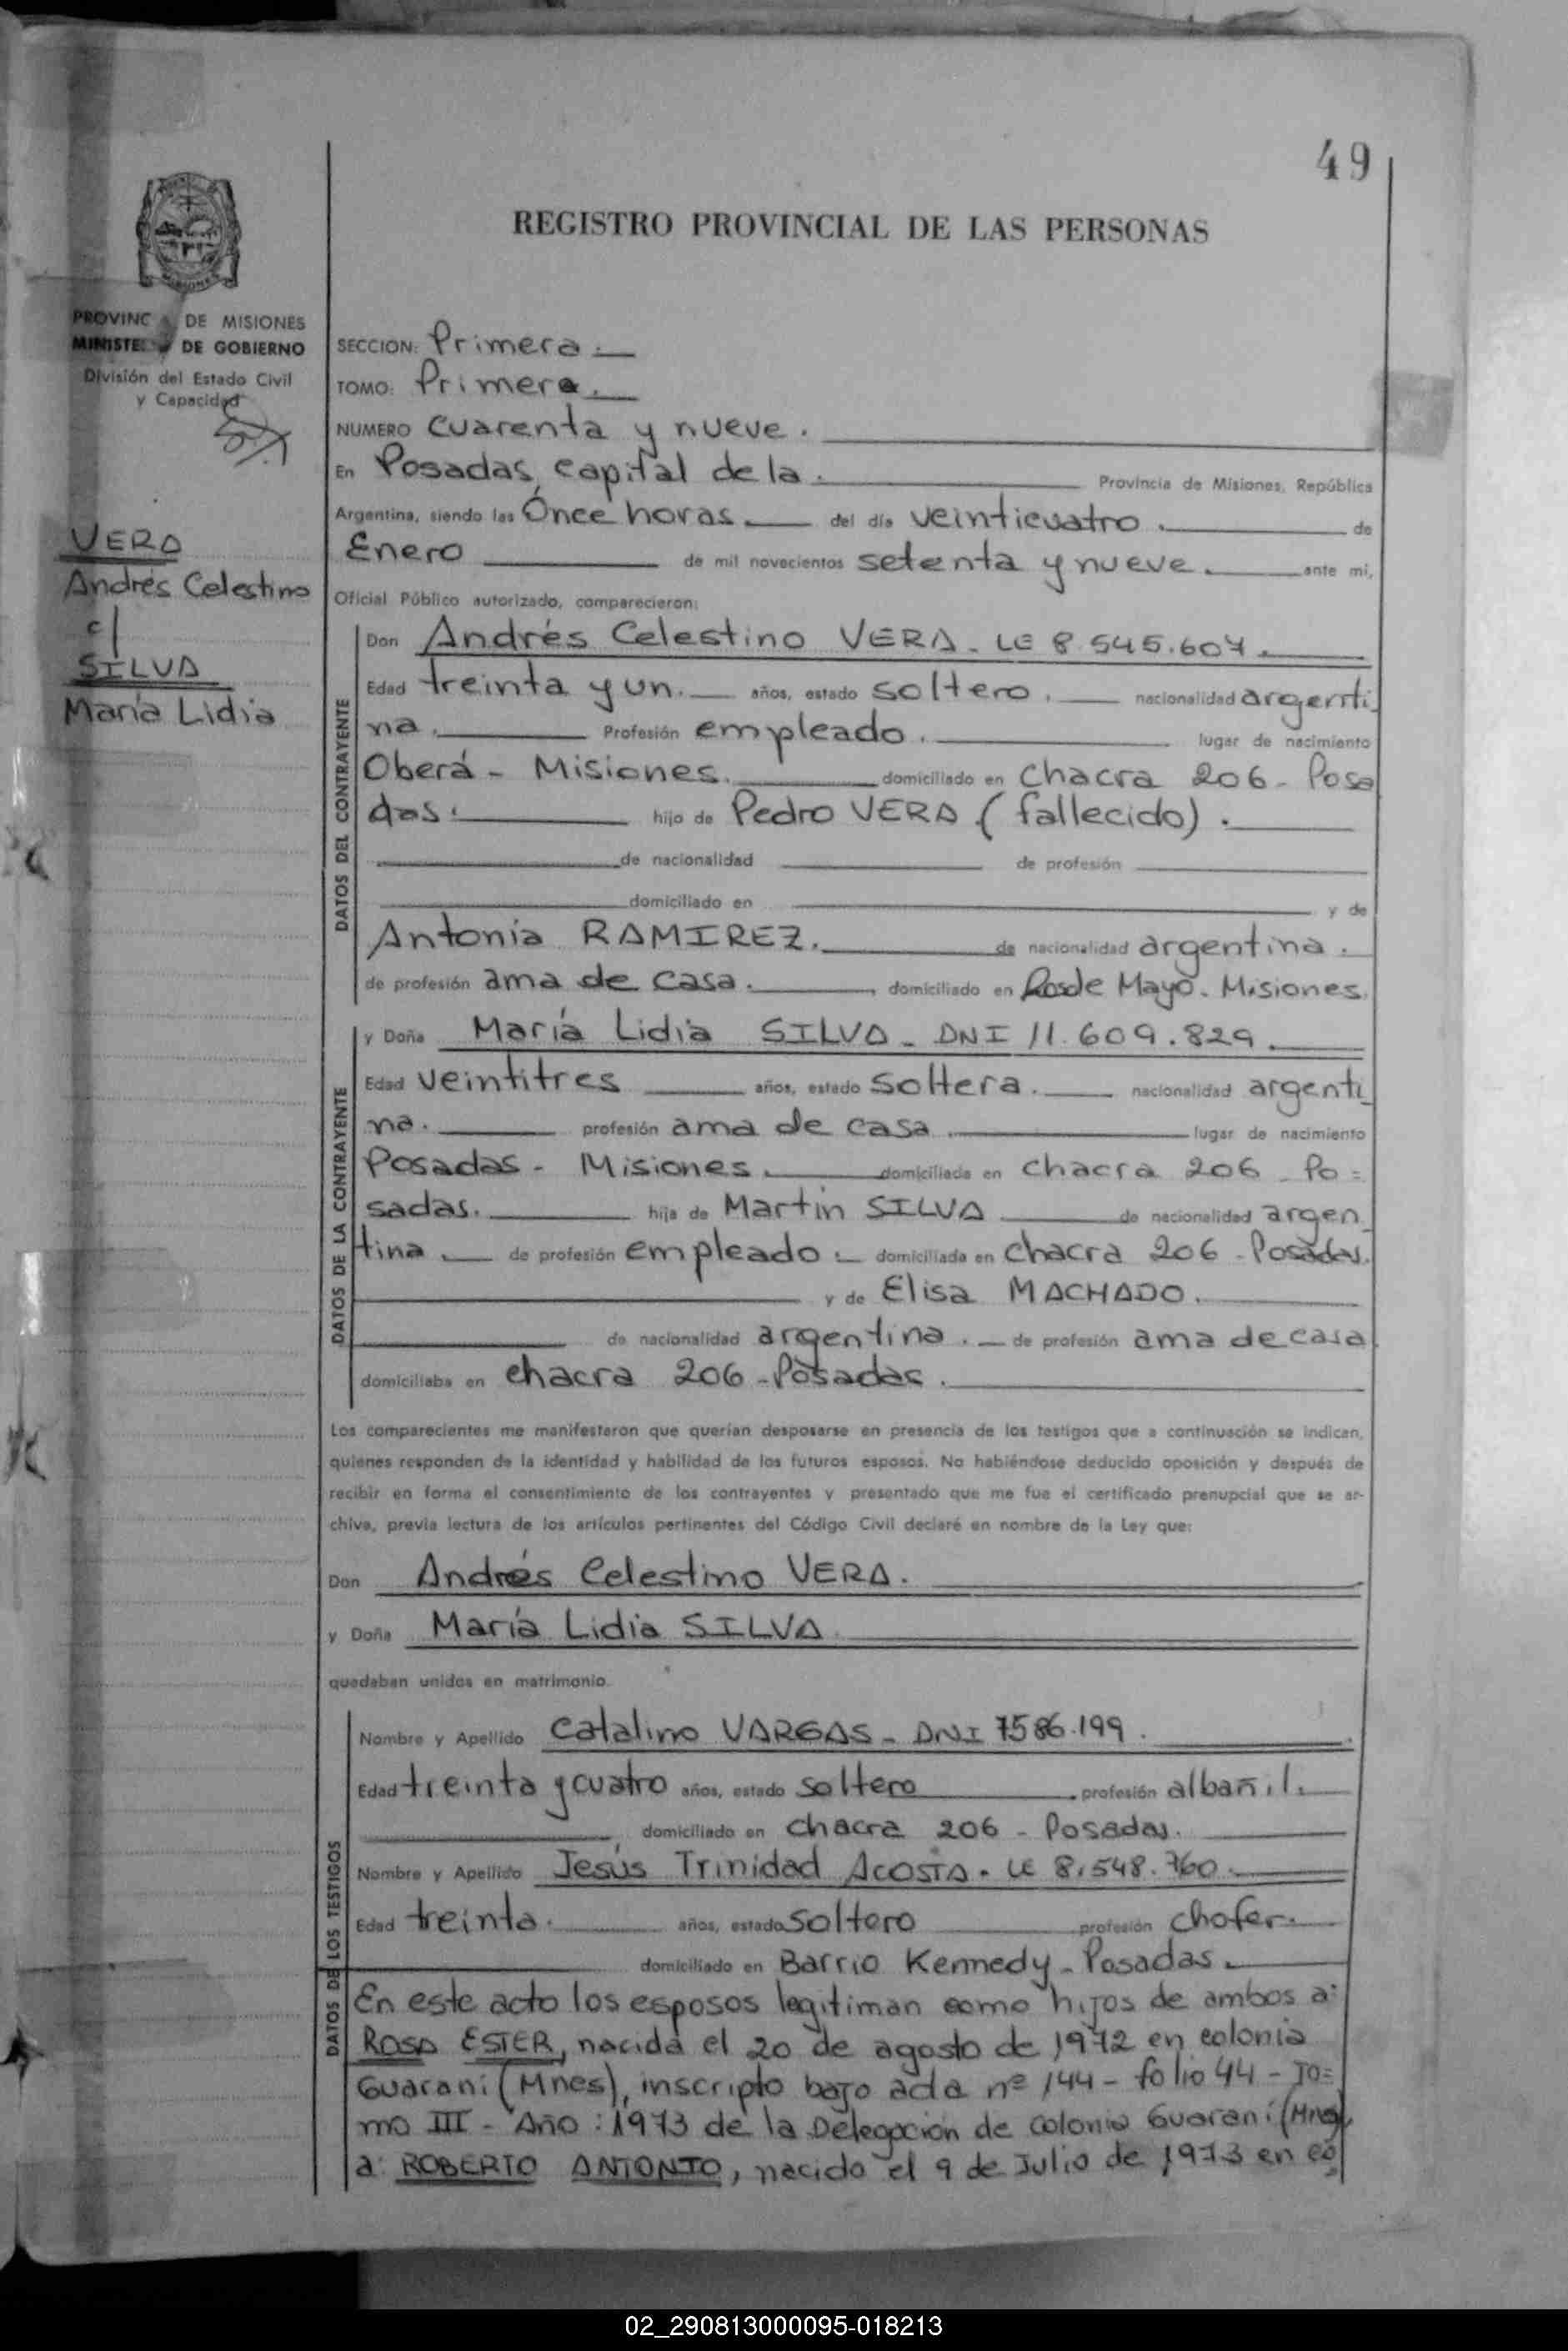 49
REGISTRO PROVINCIAL DE LAS PERSONAS
PROVINC DE MISIONES
MINISTE DE GOBIERNO
División del Estado Civil
y Capacidad
VERA
Andrés Celestino
c/
SILVA
María Lidia
SECCION: Primera.
TOMO: Primero.
NUMERO cuarenta y nueve.
En Posadas, capital de la. Provincia de Misiones, República
Argentina, siendo las Once horas. del día veinticuatro. de
Enero de mil novecientos setenta y nueve. ante mi,
Oficial Público autorizado, comparecieron:
DATOS DEL CONTRAYENTE
Don Andrés Celestino VERA - LE 8.545.607.
Edad treinta y un. años, estado soltero. nacionalidad argenti
na. Profesión empleado. lugar de nacimiento
Oberá - Misiones. domiciliado en chacra 206 - Posa
das. hijo de Pedro VERA (fallecido).
de nacionalidad de profesión
domiciliado en y de
Antonia RAMIREZ. de nacionalidad argentina.
de profesión ama de casa. domiciliado en de Mayo. Misiones.
DATOS DE LA CONTRAYENTE
y Doña María Lidia SILVA - DNI 11.609.829.
Edad veintitres años, estado soltera. nacionalidad argenti
na. profesión ama de casa. lugar de nacimiento
Posadas - Misiones. domiciliada en chacra 206 - Po=
sadas. hija de Martin SILVA de nacionalidad argen
tina. de profesión empleado. domiciliada en chacra 206 - Posadas.
y de Elisa MACHADO.
de nacionalidad argentina. de profesión ama de casa
domiciliaba en chacra 206 - Posadas.
Los comparecientes me manifestaron que querían desposarse en presencia de los testigos que a continuación se indican,
quienes responden de la identidad y habilidad de los futuros esposos. No habiéndose deducido oposición y después de
recibir en forma el consentimiento de los contrayentes y presentado que me fue el certificado prenupcial que se ar-
chiva, previa lectura de los artículos pertinentes del Código Civil declaré en nombre de la Ley que:
Don Andrés Celestino VERA.
y Doña María Lidia SILVA
quedaban unidos en matrimonio.
DATOS DE LOS TESTIGOS
Nombre y Apellido Catalino VARGAS - DNI 7586.199.
Edad treinta y cuatro años, estado soltero profesión albañil.
domiciliado en chacra 206 - Posadas.
Nombre y Apellido Jesús Trinidad ACOSTA. LE 8.548.760.
Edad treinta. años, estado soltero profesión chofer.
domiciliado en Barrio Kennedy - Posadas.
En este acto los esposos legitiman como hijos de ambos a:
ROSA ESTER, nacida el 20 de agosto de 1972 en colonia
Guaraní (Mnes), inscripto bajo acta nº 144 - folio 44 - To=
mo III - Año: 1973 de la Delegación de colonia Guaraní (Mnes),
a: ROBERTO ANTONIO, nacido el 9 de Julio de 1973 en co
02_290813000095-018213